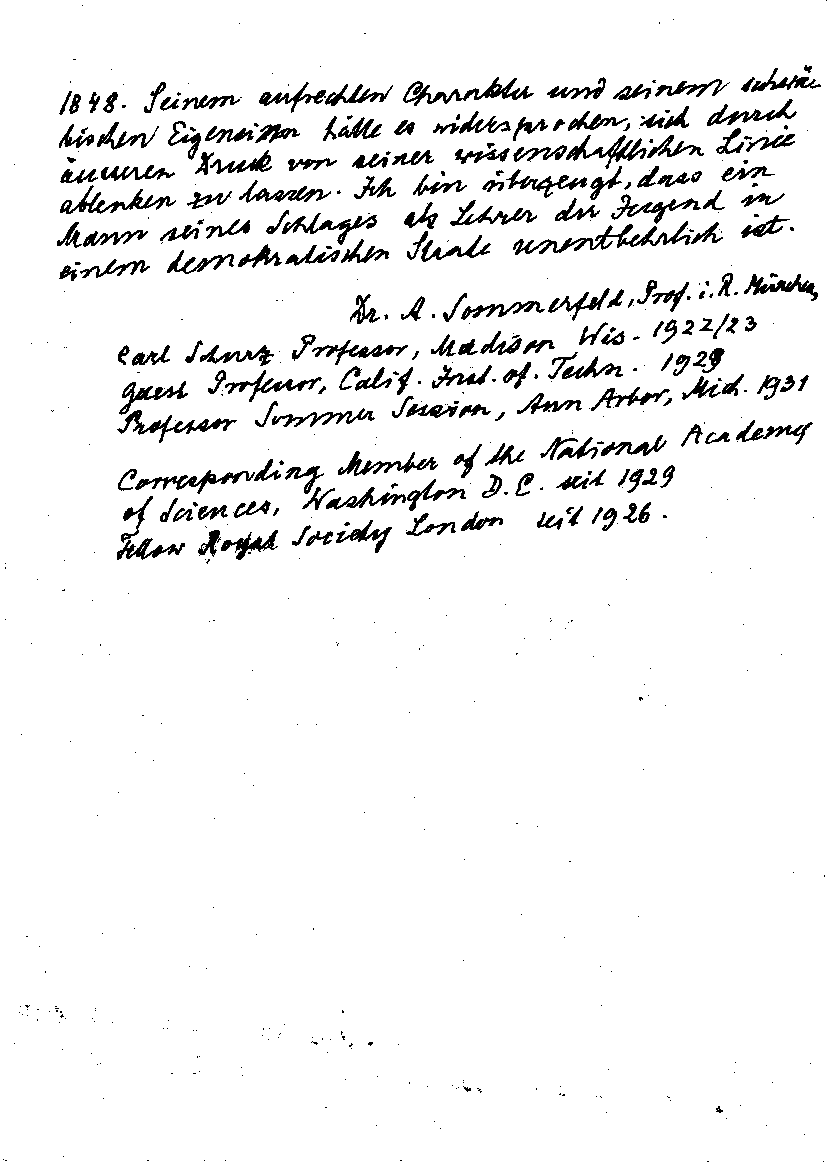 1848. Seinem aufrechten Charakter und seinem schwä-
bischen Eigensinn hätte es widersprochen, sich durch
äusseren Druck von seiner wissenschaftlichen Linie
ablenken zu lassen. Ich bin überzeugt, dass ein
Mann seines Schlages als Lehrer der Jugend in
einem demokratischen Staate unentbehrlich ist.
Dr. A. Sommerfeld, Prof. i. R. München,
Carl Schurz Professor, Madison Wis. 1922/23
guest Professor, Calif. Inst. of. Techn. 1929
Professor Sommer Session, Ann Arbor, Mich. 1931
Corresponding Member of the National Academy
of Sciences, Washington D. C. seit 1929
Fellow Royal Society London seit 1926.